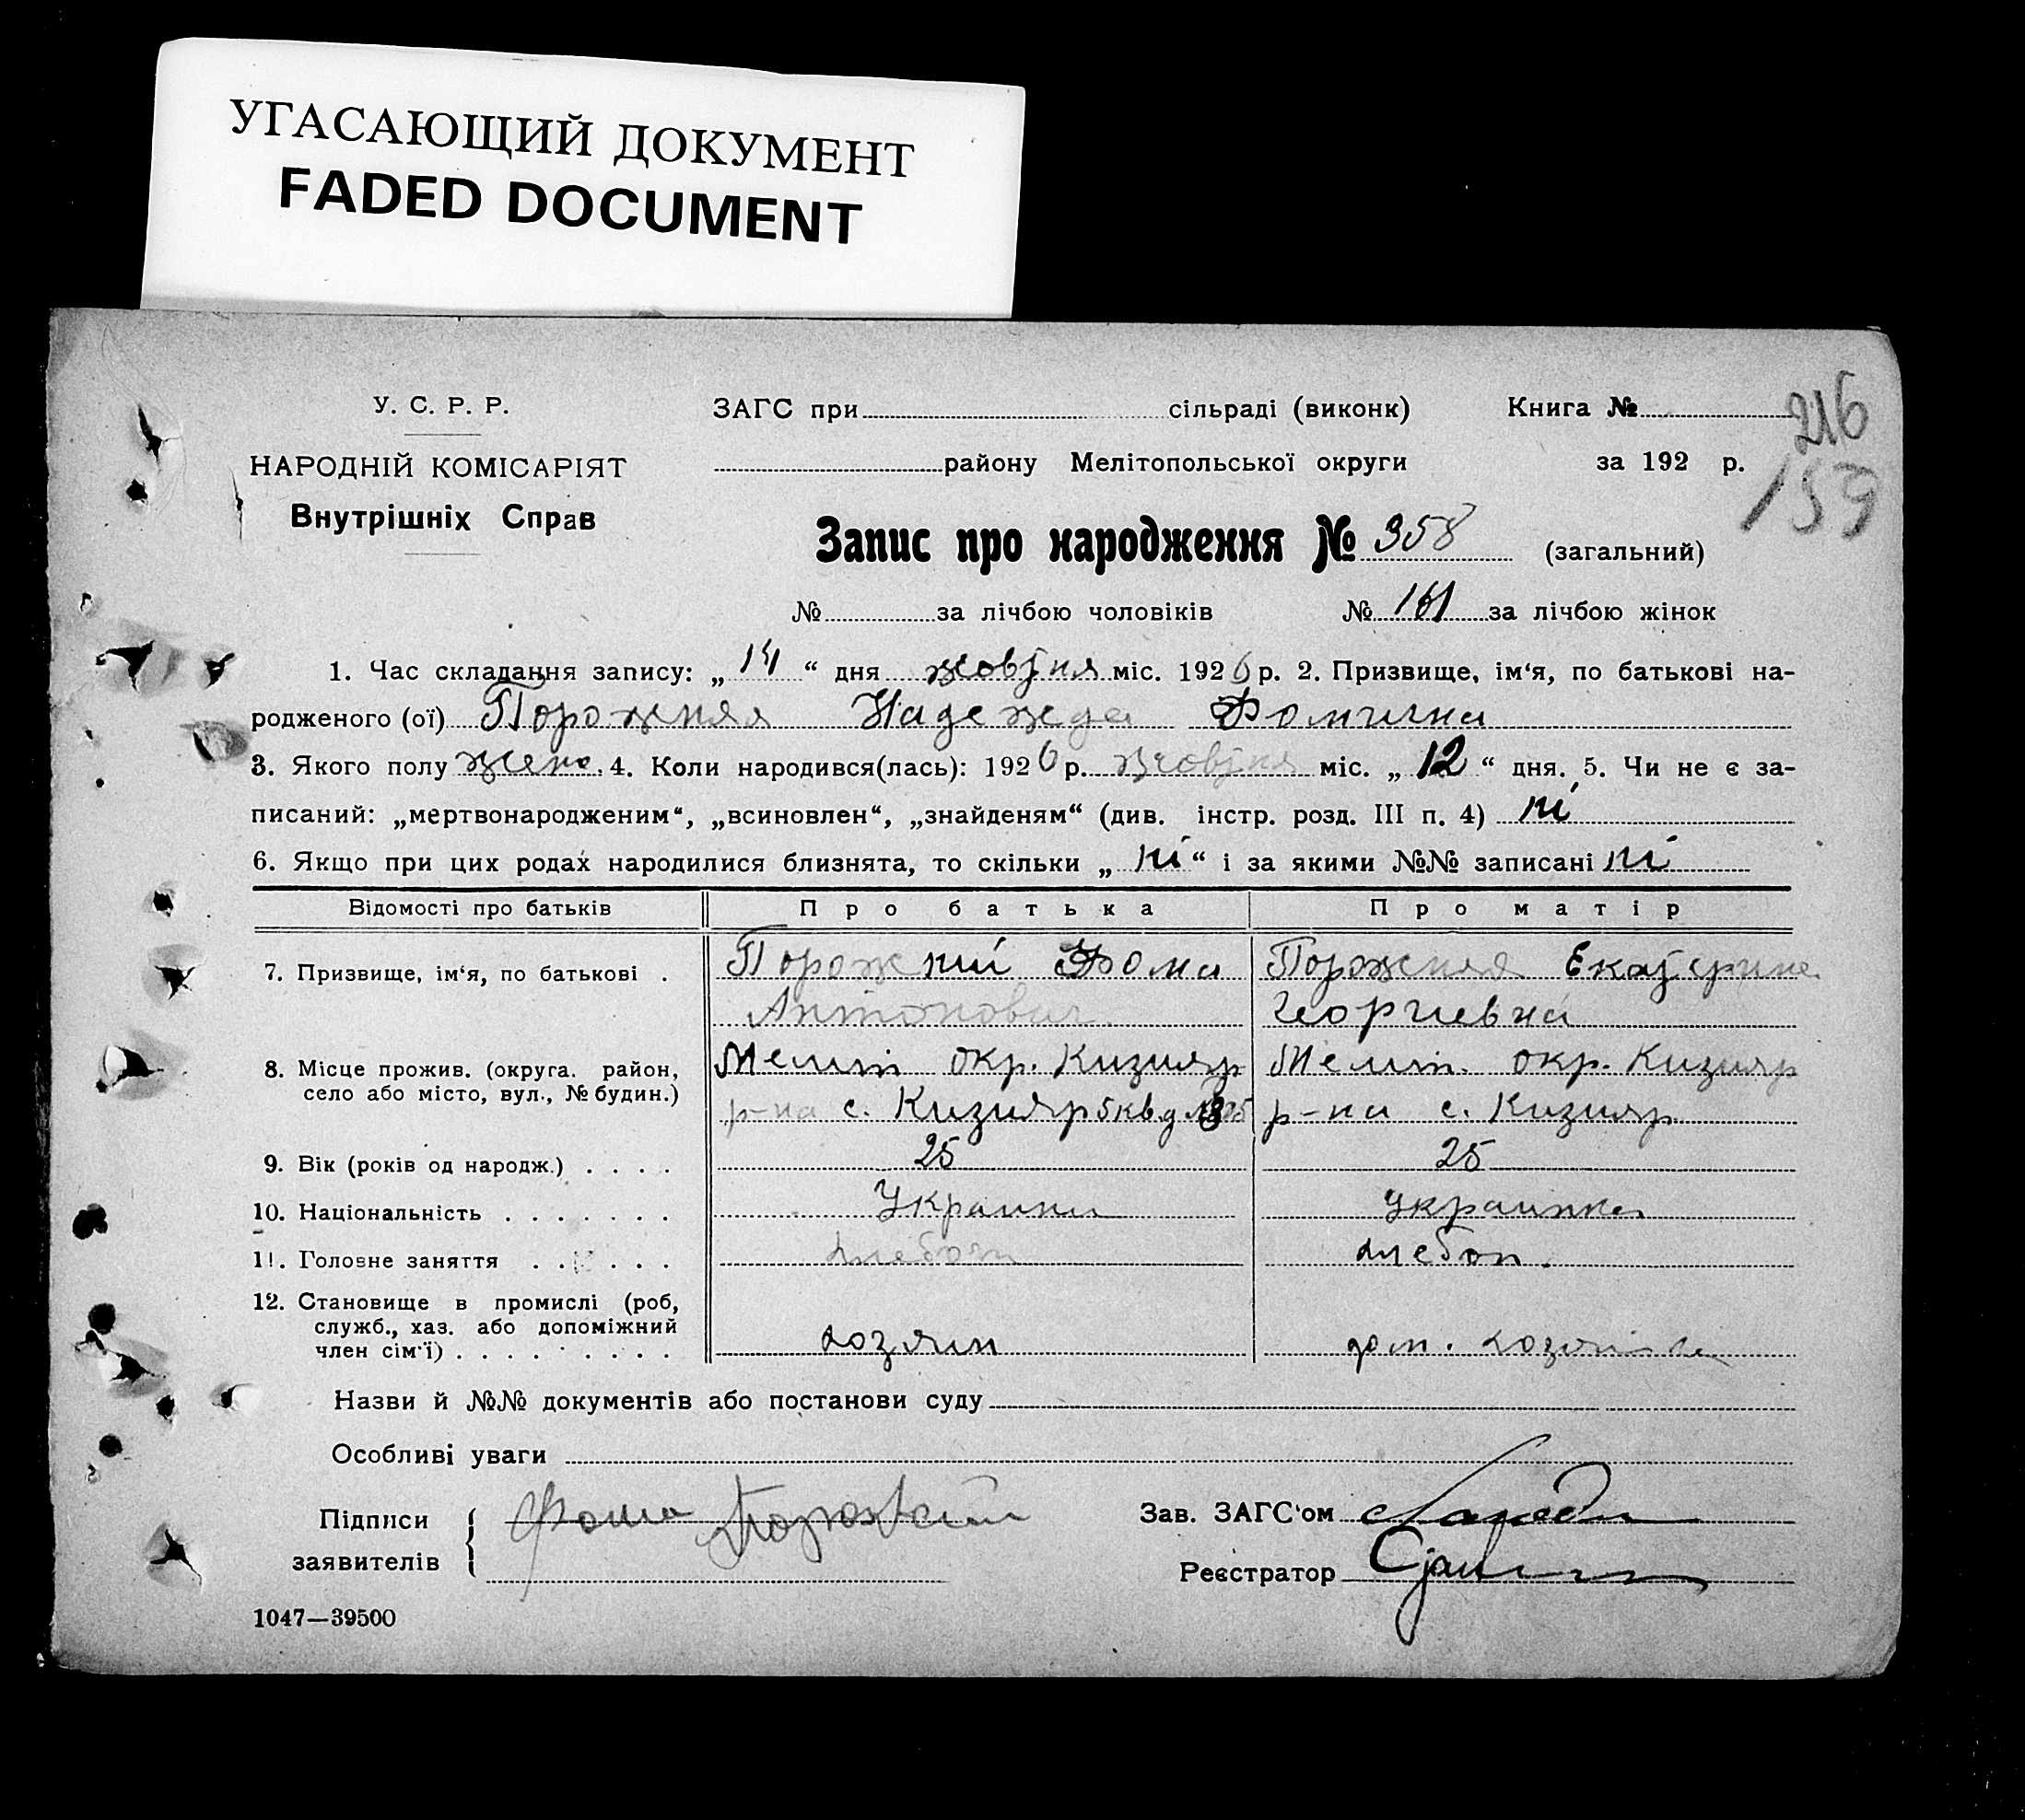 УГАСАЮЩИЙ ДОКУМЕНТ
FADED DOCUMENT
У. С. Р. Р.
НАРОДНІЙ КОМІСАРІЯТ
Внутрішніх Справ
ЗАГС при сільраді (виконк) Книга №
216
району Мелітопольської округи за 192 р.
159
Запис про народження № 358 (загальний)
№ за лічбою чоловіків № 161 за лічбою жінок
1. Час складання запису: „ 14 “ дня жовтня міс. 1926 р. 2. Призвище, ім‘я, по батькові на-
родженого (ої) Порожняя Надежда Фомична
3. Якого полу жено. 4. Коли народився(лась): 1926 р. жовтня міс. „ 12 “ дня. 5. Чи не є за-
писаний: „мертвонародженим“, „всиновлен“, „знайденям“ (див. інстр. розд. III п. 4) ні
6. Якщо при цих родах народилися близнята, то скільки „ ні “ і за якими №№ записані ні
Відомості про батьків Про батька Про матір
7. Призвище, ім‘я, по батькові . Порожний Фома Порожняя Екатерина
Антонович Георгиевна
8. Місце прожив. (округа. район, Мелит окр. Кизияр Мелит. окр. Кизияр
село або місто, вул., № будин.) р-на с. Кизияр 5 кв д р-на с. Кизияр
9. Вік (років од народж.) . . . . 25 25
10. Національність . . . . . . . Украинец Украинка
11. Головне заняття . . . . . хлебоп хлебоп.
12. Становище в промислі (роб,
служб., хаз. або допоміжний
член сім‘ї) . . . . . . . . . хозяин дом. хозяйка
Назви й №№ документів або постанови суду
Особливі уваги
Підписи
заявителів Фома Порожний
Зав. ЗАГС‘ом
Реєстратор
1047—39500